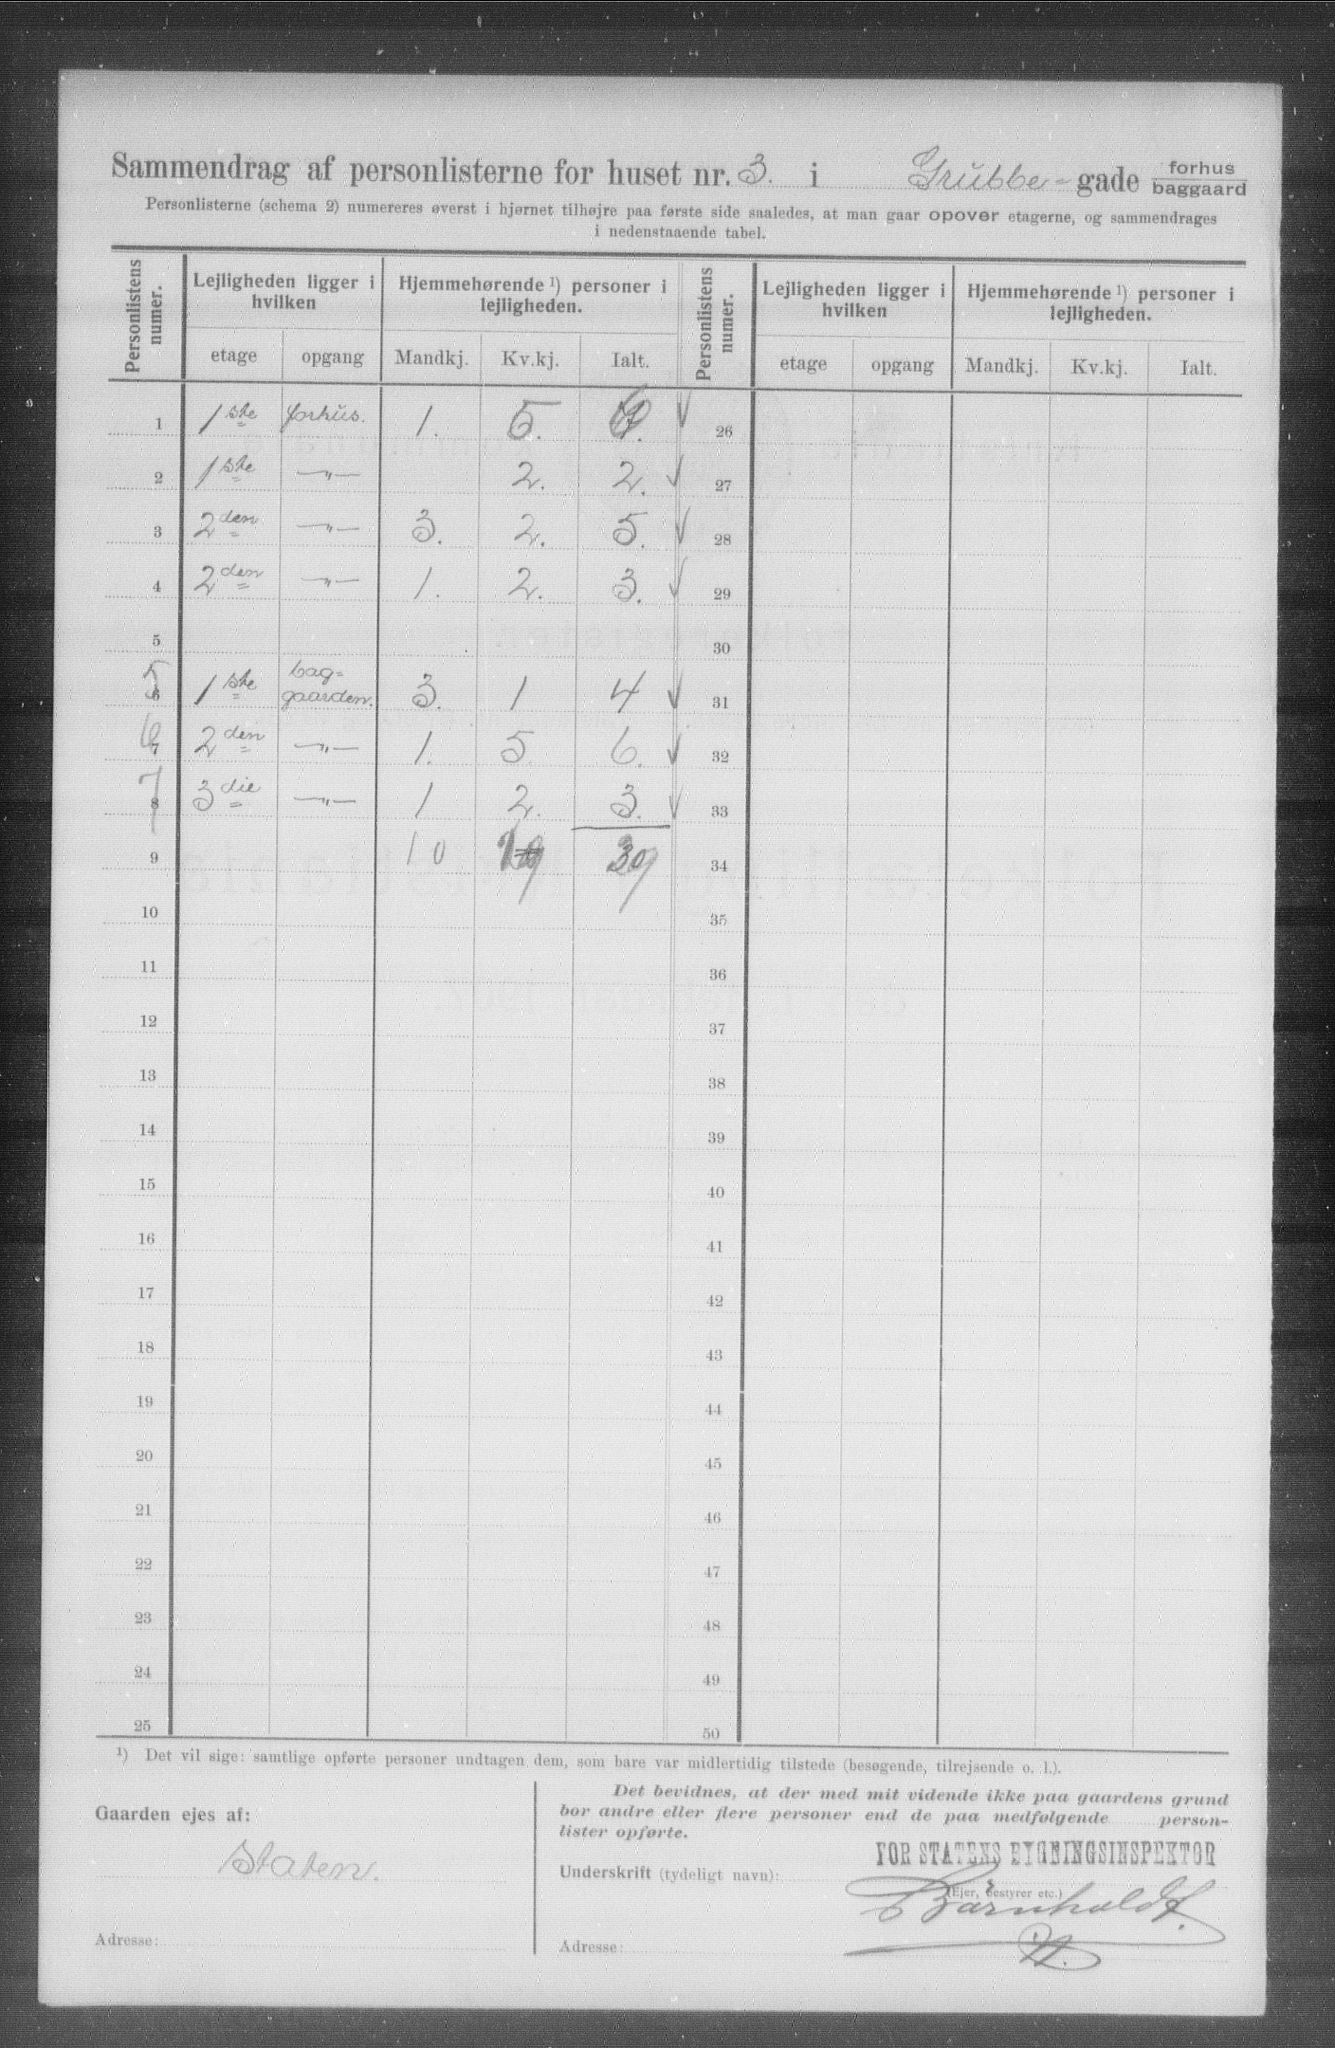 Sammendrag af personlisterne for huset nr. 3. i Grubbe-gade forhus baggaard
Personlisterne (schema 2) numereres øverst i hjørnet tilhøjre paa første side saaledes, at man gaar opover etagerne, og sammendrages
i nedenstaaende tabel.
Personlistens numer. Lejligheden ligger i hvilken Hjemmehørende ¹) personer i lejligheden. Personlistens numer. Lejligheden ligger i hvilken Hjemmehørende ¹) personer i lejligheden.
etage opgang Mandkj. Kv.kj. Ialt. etage opgang Mandkj. Kv.kj. Ialt.
1 1ste forhus. 1. 5. 6 √ 26
2 1ste —"— 2. 2. √ 27
3 2den —"— 3. 2. 5. √ 28
4 2den —"— 1. 2. 3. √ 29
5 30
5 6 1ste bag-gaarden. 3. 1 4 √ 31
6 7 2den —"— 1. 5 6. √ 32
7 8 3die —"— 1 2. 3. √ 33
9 10 19 29 34
10 35
11 36
12 37
13 38
14 39
15 40
16 41
17 42
18 43
19 44
20 45
21 46
22 47
23 48
24 49
25 50
¹) Det vil sige: samtlige opførte personer undtagen dem, som bare var midlertidig tilstede (besøgende, tilrejsende o. l.).
Gaarden ejes af:
Staten.
Adresse:
Det bevidnes, at der med mit vidende ikke paa gaardens grund
bor andre eller flere personer end de paa medfølgende person-
lister opførte.
FOR STATENS BYGNINGSINSPEKTOR
Underskrift (tydeligt navn):
(Ejer, bestyrer etc.)
Barnholdt.
Adresse: